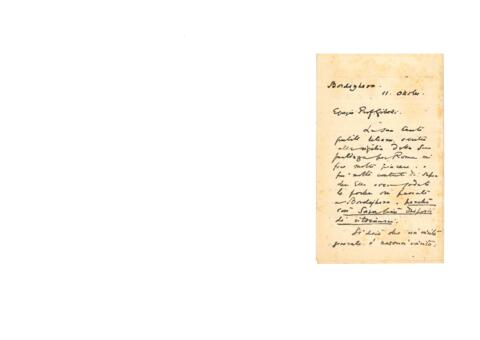 Bordighera.
11. Ottobre.
Egregio Prof.
La sua tanto
gentile lettera, scritta
alla vigilia della Sua
partenza per Roma mi
fece molto piacere. e
fui molto contento di sapere
che Ella aveva goduto
le poche ore passate
a Bordighera. perchè
così Sarà bene disposto
di ritornarvi.
Si dice che un visita
è visita.